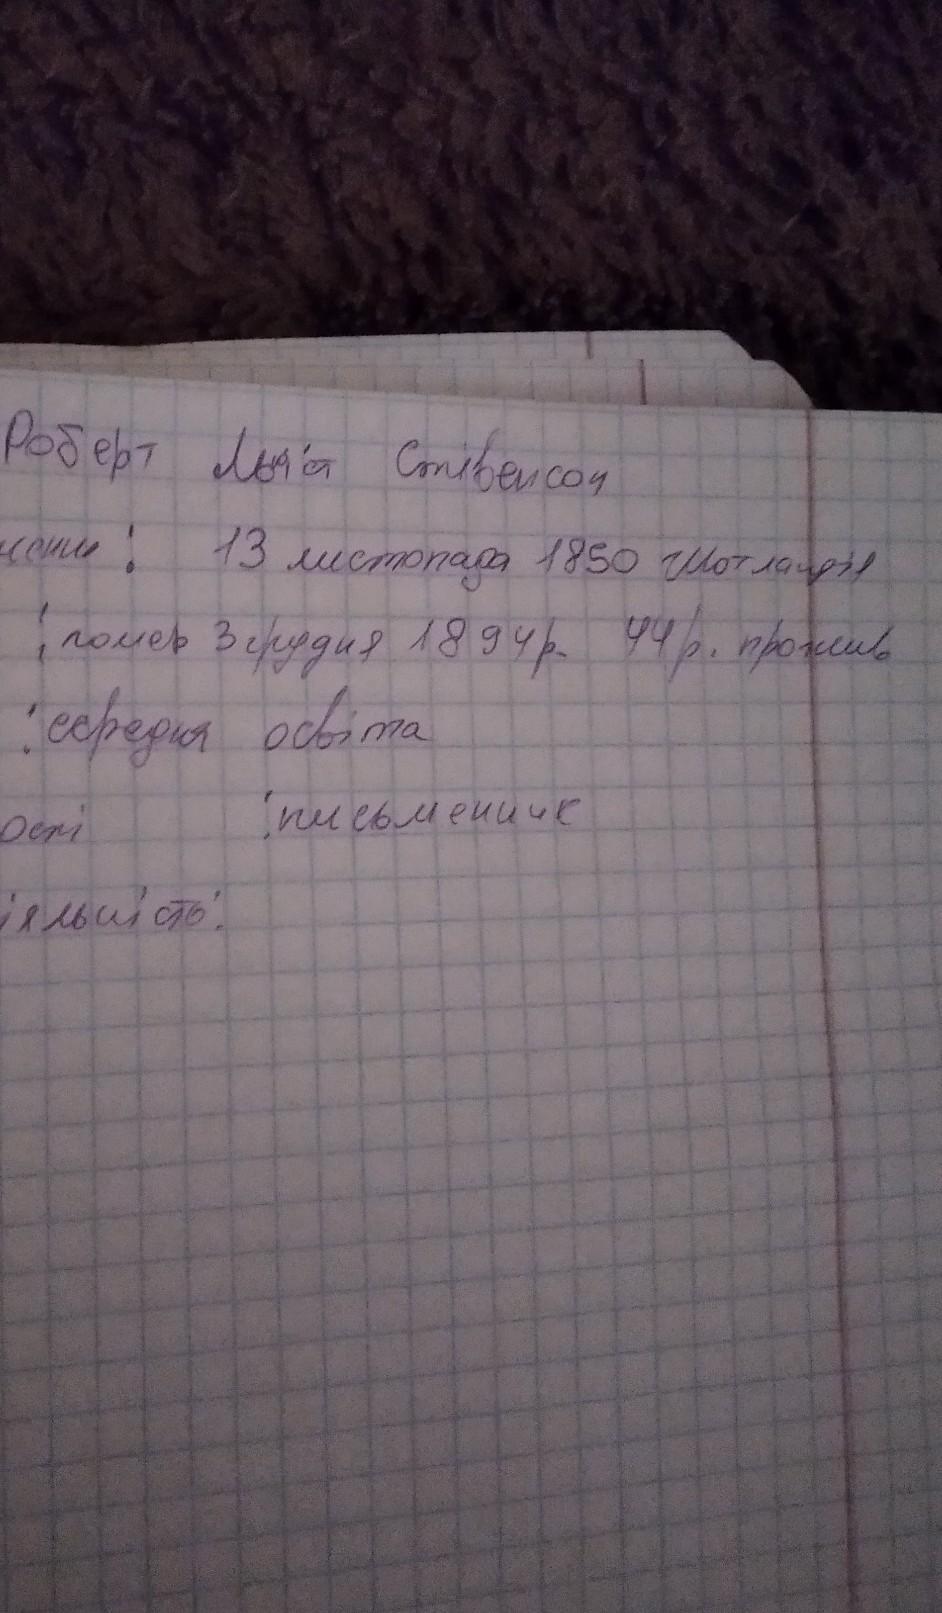 Роберт Луїс Стівенсон
ження: 13 листопада 1850 Шотландія
: помер 3 грудня 1894р. 44р. прожив
: середня освіта
ості : письменник
іяльність: